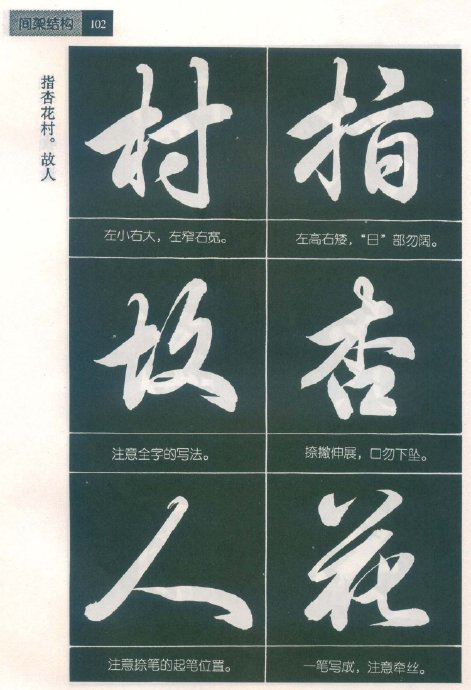 间架结构 102
指杏花村。故人
指
左高右矮，“日”部勿阔。
杏
捺撇伸展，口勿下坠。
花
一笔写成，注意牵丝。
村
左小右大，左窄右宽。
故
注意全字的写法。
人
注意捺笔的起笔位置。